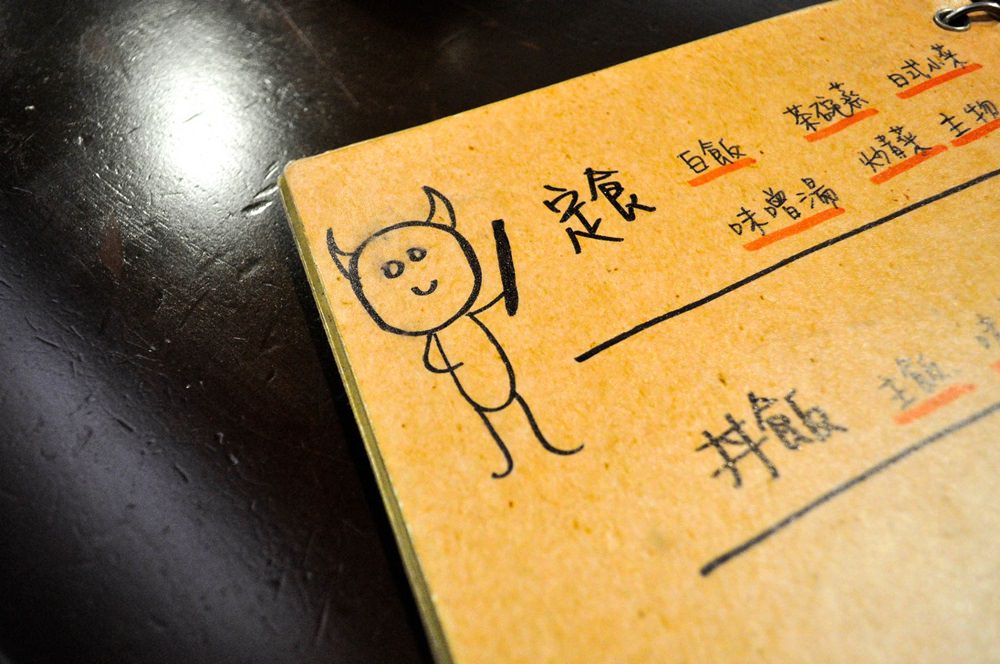 定食 白飯 茶碗蒸 日式小菜
味噌湯 炒青菜 主物
丼飯 主飯 味